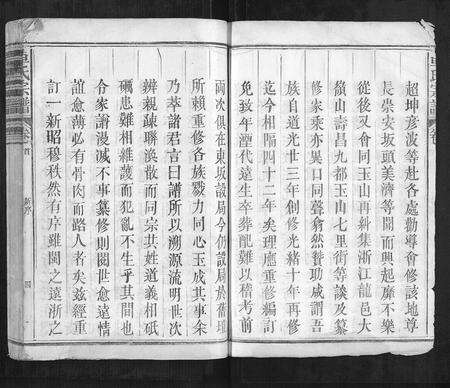 超坤彦波等赴各處勸導會修該地尊
長崇安坂頭美濟等聞而興起靡不樂
從後又會同玉山再糾集浙江龍邑大
嶺山壽昌九都玉山七里術等談及纂
修家乘亦異口同聲僉然贊功咸謂吾
族自道光廿三年創修光緒十年再修
迄今相隔四十二年矣理應重修編訂
免致年湮代遠生卒葬配難以稽考前
兩次俱在東坂設局今仍設局於舊壇
所賴重修各族戮力同心玉成其事余
乃萃諸君言曰譜所以溯源流明世次
辨親疎聯渙散而同宗共姓道義相砥
礪患難相維護而犯亂不生乎其間也
令家譜漫滅不事纂修則閱世愈遠情
誼愈薄必有骨肉而路人者矣茲經重
訂一新昭穆秩然有序雖閩之遠浙之
車氏宗譜
卷首
新序
四